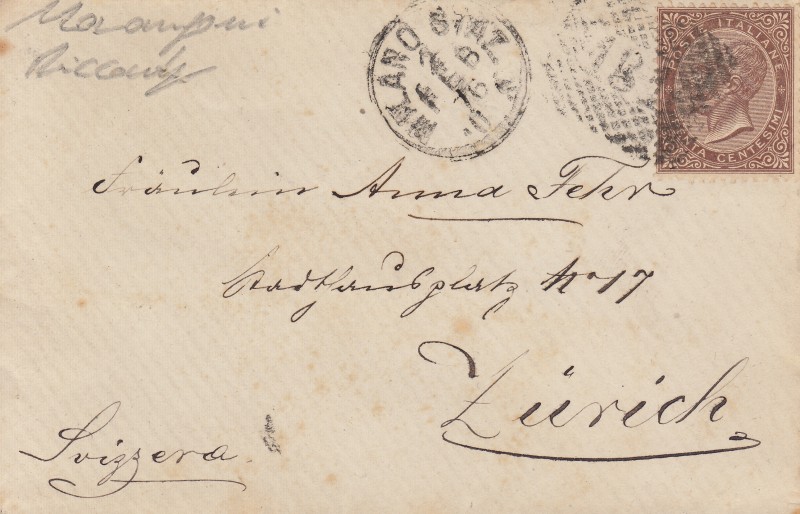 Riccardo
MILANO STAZ.
FEB
76
POSTE ITALIANE
TRENTA CENTESIMI
Fräulein Anna Fehr
Stadthausplatz No 17
Zürich
Svizzera